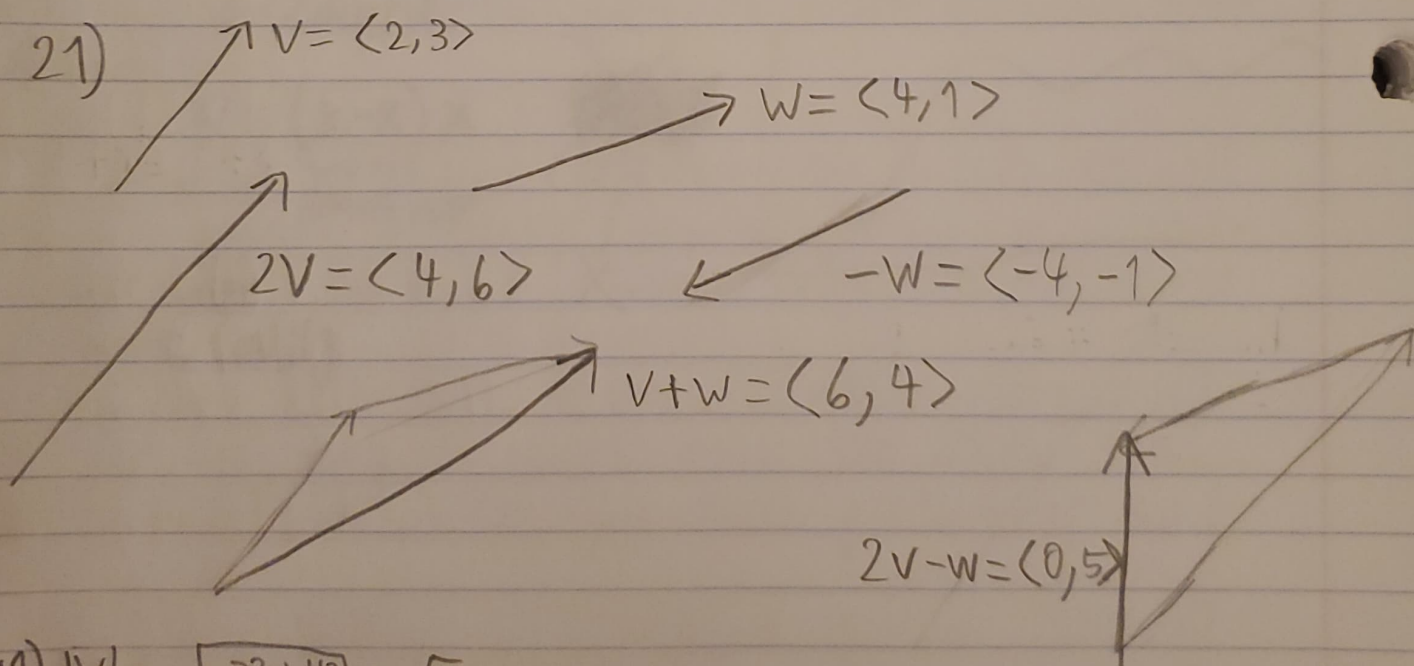 21) V = <2,3>
W = <4,1>
2V = <4,6>
-W = <-4,-1>
V+W = <6,4>
2V-W = <0,5>